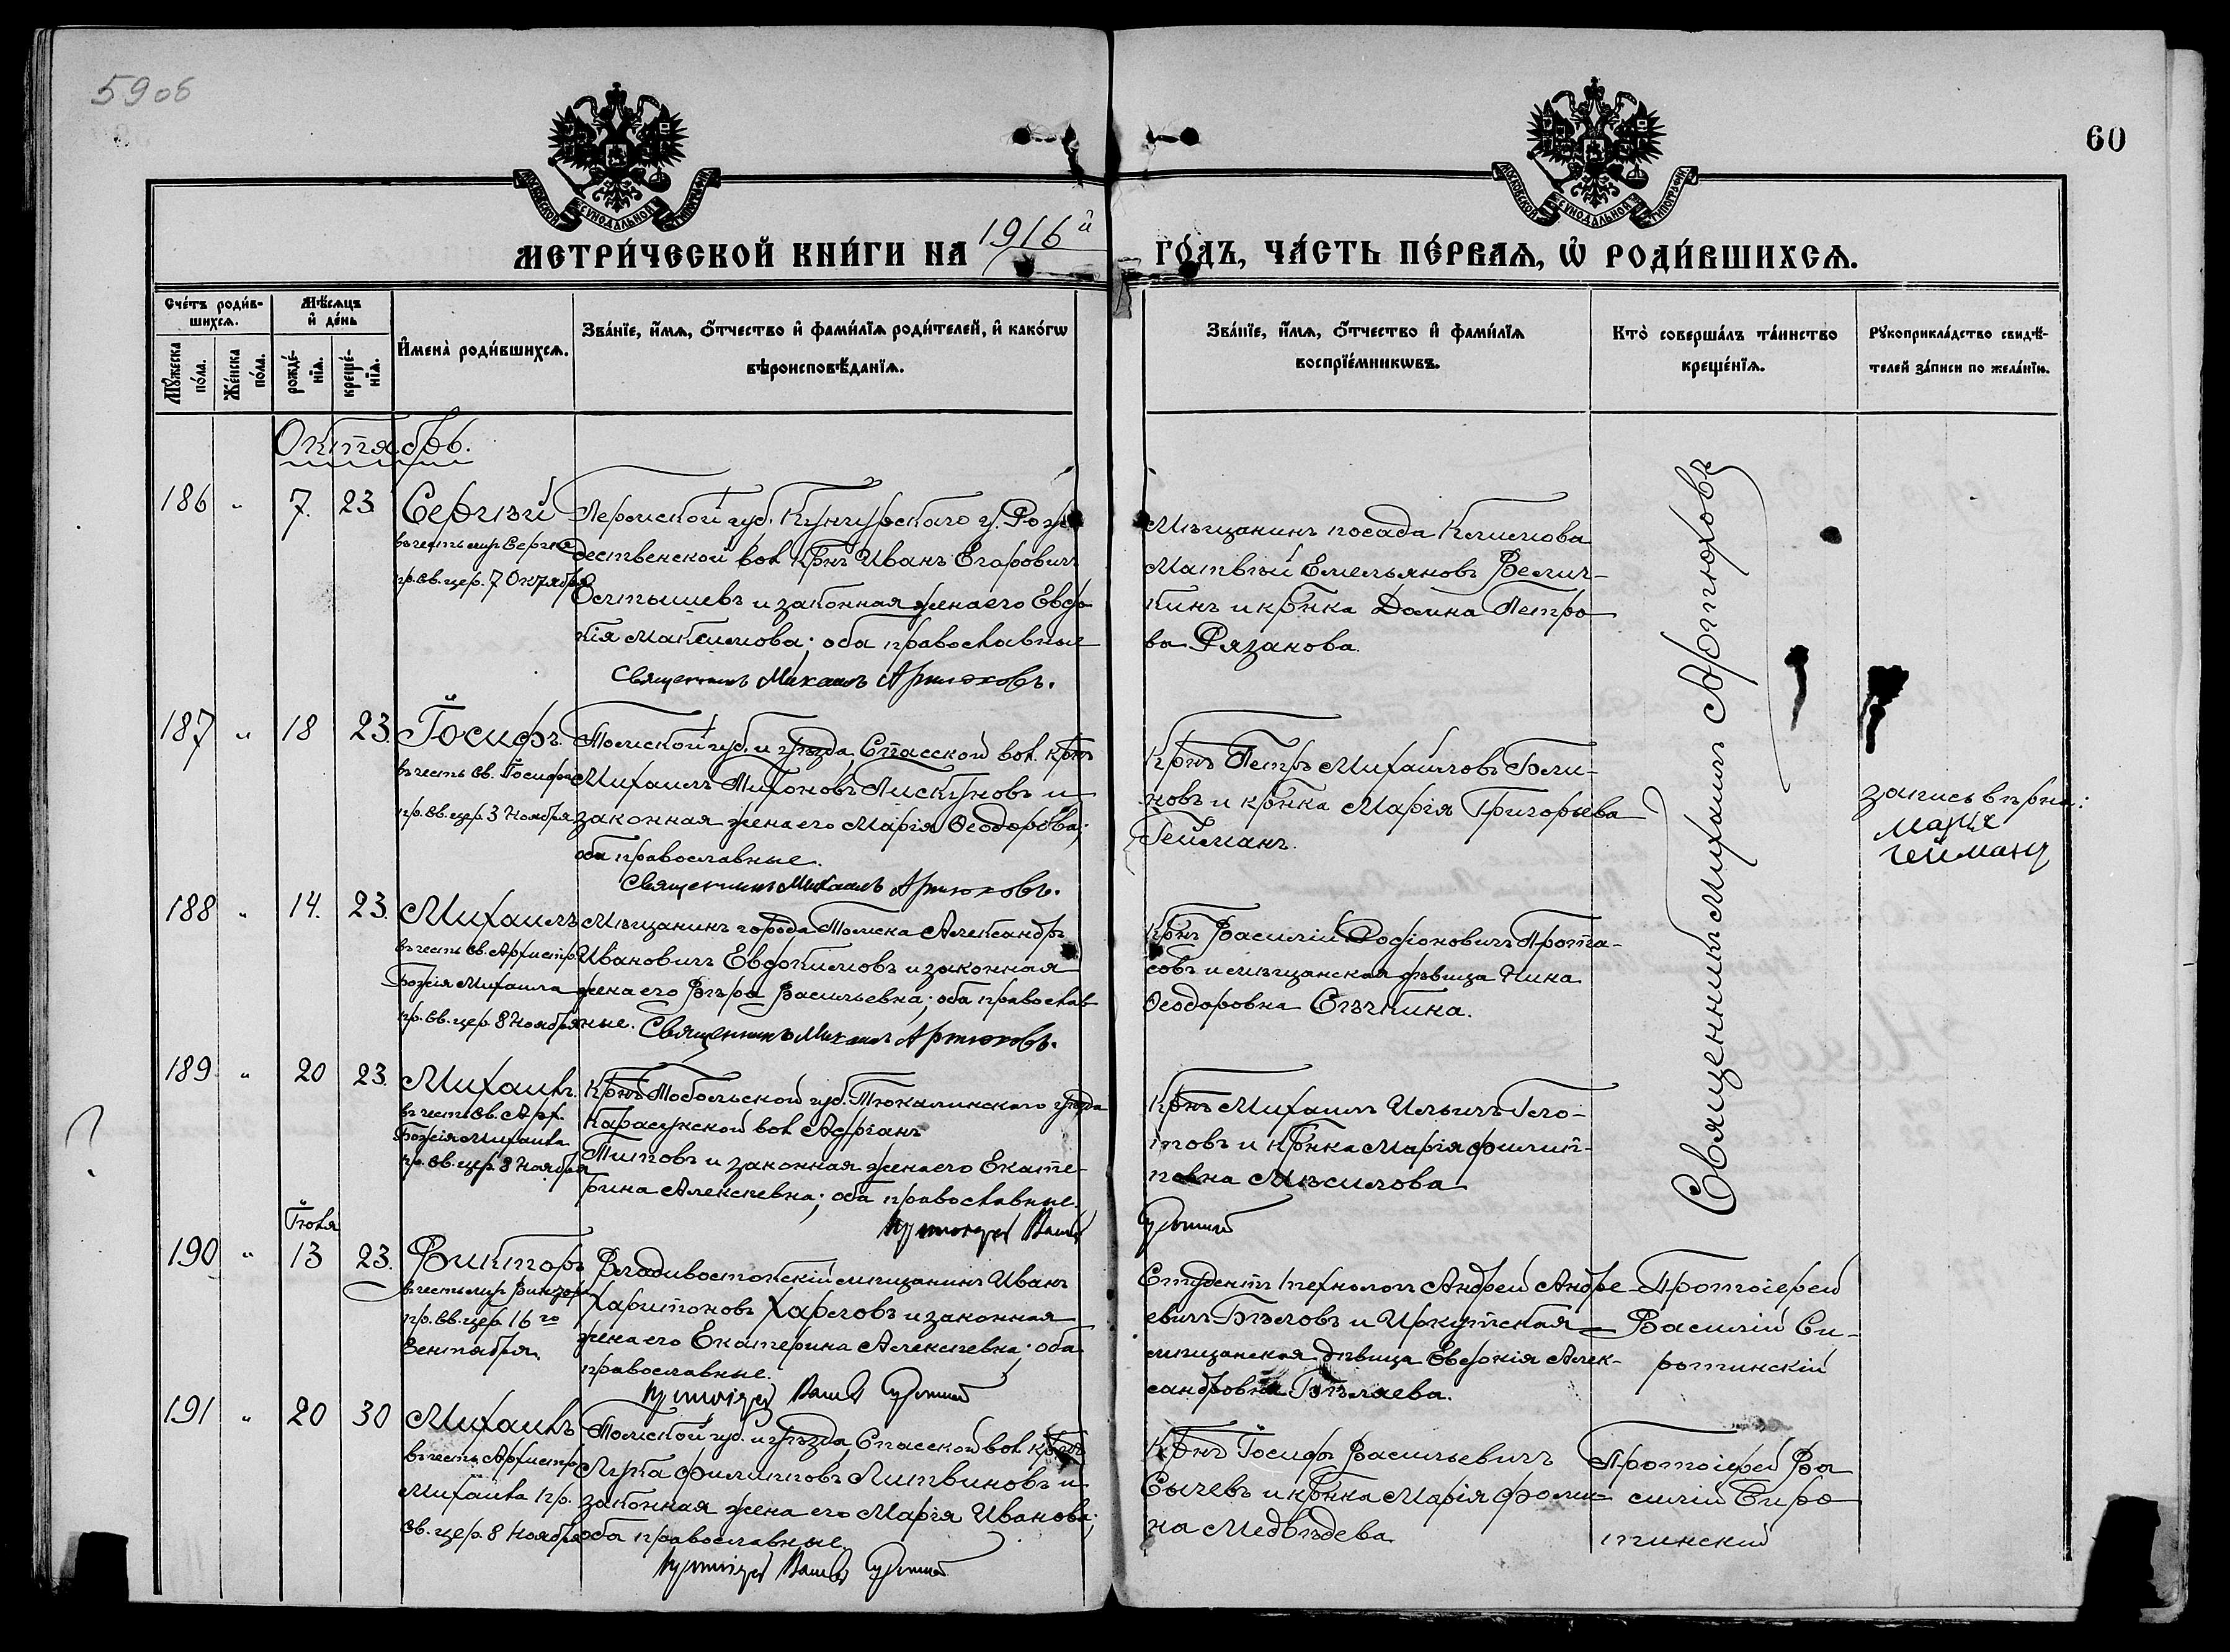 59об
60
МОСКОВСКОЙ СУНОДАЛЬНОЙ ТИПОГРАФІИ
МОСКОВСКОЙ СУНОДАЛЬНОЙ ТИПОГРАФІИ
МЕТРИ́ЧЕСКОЙ КНИ́ГИ НА 1916й ГО́ДЪ, ЧА́СТЬ ПЕ́РВАѦ, Ѡ҆ РОДИ́ВШИХСѦ.
Сче́тъ роди́в-
шихсѧ.
Мѣ́сѧцъ
и҆ де́нь
Мꙋ́жеска
по́ла.
Же́нска
по́ла.
рожде́-
нїѧ.
креще́-
нїѧ.
И҆мена̀ роди́вшихсѧ.
Зва́нїе, и҆́мѧ, ѻ҆́тчество и҆ фами́лїѧ роди́телей, и҆ како́гѡ
вѣроисповѣ́данїѧ.
Зва́нїе, и҆́мѧ, ѻ҆́тчество и҆ фами́лїѧ
воспрїе́мникѡвъ.
Кто̀ соверша́лъ та́инство
креще́нїѧ.
Рꙋкоприкла́дство свидѣ́-
телей за́писи по жела́нїю.
Октябрь.
186 " 7. 23.
Сергѣй
въ честь мчр. Сергія
пр. св. цер. 7 Октября
Пермской губ. Кунгурскаго у. Рож-
дественской вол. крнъ Иванъ Егоровичъ
и законная жена его Евдо
кія Максимова; оба православные
Священникъ Михаилъ Артюховъ.
Мѣщанинъ посада Климова
Матвѣй Емельяновъ Велич-
кинъ и крнка Домна Петро
ва Рязанова.
Священникъ Михаилъ Артюховъ
187 " 18 23.
Іосифъ.
въ честь св. Іосифа
пр. св. цер. 3 Ноября
Томской губ. и уѣзда, Спасской вол. крнъ
Михаилъ Тихоновъ Пискуновъ и
законная жена его Марія Ѳеодорова;
оба православные.
Священникъ Михаилъ Артюховъ.
Крнъ Петръ Михайловъ Бли-
новъ и крнка Марія Григорьева
Гейманъ.
запись вѣрна:
Марія
Гейманъ
188 " 14. 23.
Михаилъ
въ честь св. Архистр.
Божія Михаила
пр. св. цер. 8 Ноября
Мѣщанинъ города Томска Александръ
Ивановичъ Евдокимовъ и законная
жена его Вѣра Васильевна; оба православ
ные. Священникъ Михаилъ Артюховъ.
Крнъ Василій Родіоновичъ Прота-
совъ и мѣщанская дѣвица Нина
Ѳеодоровна Сѣчкина.
189 " 20 23.
Михаилъ.
въ честь св. Арх.
Божія Михаила
пр. св. цер. 8 Ноября
Крнъ Тобольской губ. Тюкалинскаго уѣзда
Карасукской вол. Адріанъ
Титовъ и законная жена его Екате-
рина Алексѣевна; оба православные.
Протоіерей Васил Сиротинскій
Крнъ Михаилъ Ильичъ Гло-
товъ и крнка Марія Филип-
повна
?
Іюля
190 " 13 23.
Викторъ
въ честь мчр. Виктора
пр. св. цер. 16го
Сентября.
Владивостокскій мѣщанинъ Иванъ
Харитоновъ Харловъ и законная
жена его Екатерина Алексѣевна; оба
православные.
Протоіерей Васил Сиротинскій
Студентъ технологъ Андрей Андре-
евичъ Бѣловъ и Иркутская
мѣщанская дѣвица Евдокія Алек-
сандровна Бѣляева.
Протоіерей
Василій Си-
ротинскій
191 " 20 30
Михаилъ
въ честь Архистр.
Михаила пр.
св. цер. 8 Ноября
Томской губ. и уѣзда, Спасской вол. крнъ
Лука Филипповъ Литвиновъ и
законная жена его Марія Иванова;
оба православные.
Протоіерей Васил Сиротинскій
Крнъ Іосифъ Васильевичъ
Сычевъ и крнка Марія Фоми-
на Медвѣдева
Протоіерей Ва
силій Сиро
тинскій